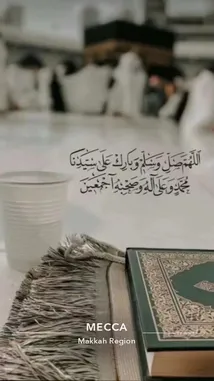 اللهم صل وسلم وبارك على سيدنا
محمد وعلى آله وصحبه أجمعين
MECCA
Makkah Region